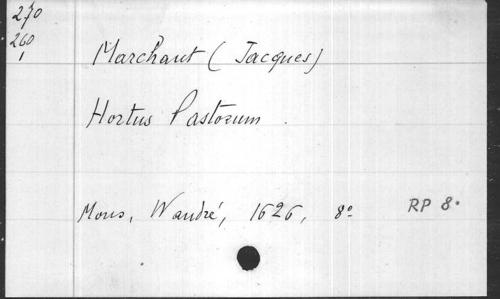 270
260
1
Marchant (Jacques)
Hortus Pastorum.
Mons, Waudré, 1626, 8º
RP 8.